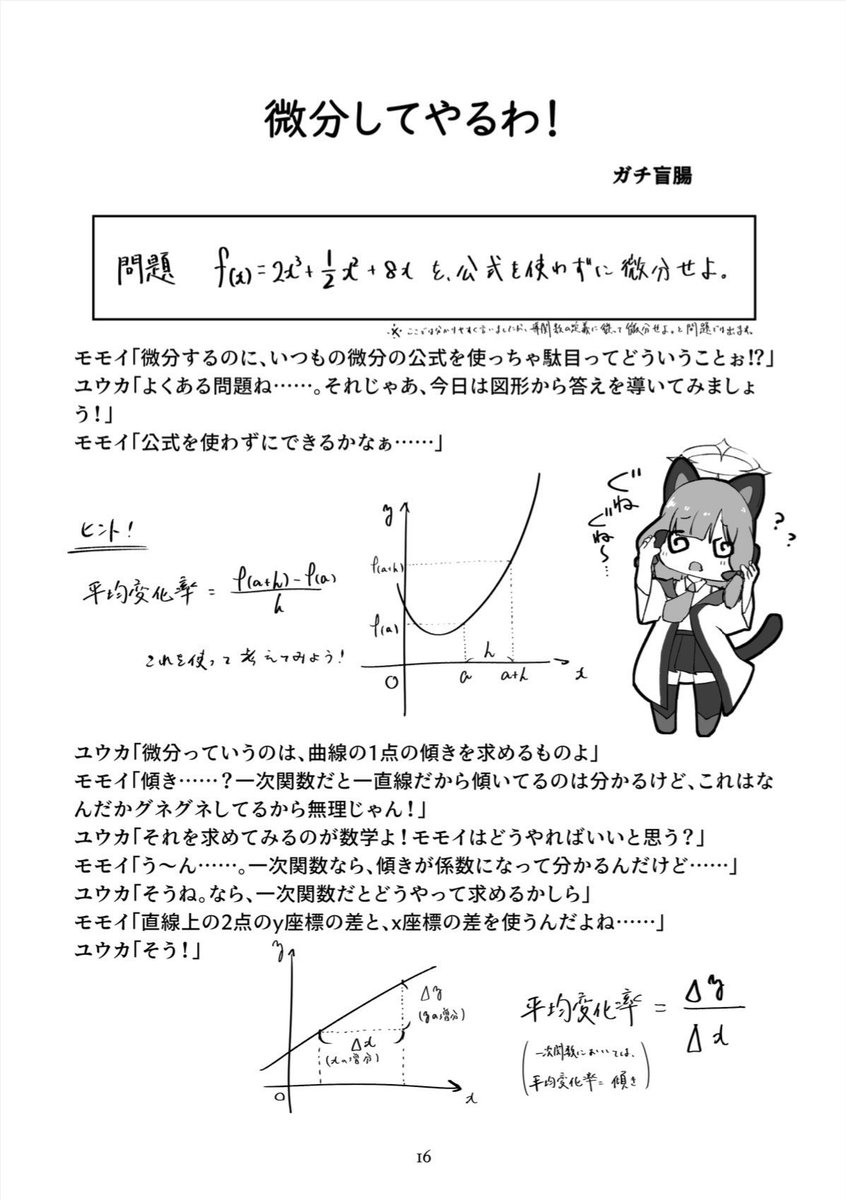 微分してやるわ！
ガチ盲腸
問題 f(x)=2x³+1/2x²+8x を、公式を使わずに微分せよ。
※ ここでは分かりやすく言いましたが、導関数の定義に従って微分せよ。と問題では出ます。
モモイ「微分するのに、いつもの微分の公式を使っちゃ駄目ってどういうことぉ!?」
ユウカ「よくある問題ね……。それじゃあ、今日は図形から答えを導いてみましょ
う！」
モモイ「公式を使わずにできるかなぁ……」
ぐね
ぐね〜…
??
ヒント！
平均変化率 = f(a+h)-f(a)/h
これを使って考えてみよう！
y
f(a+h)
f(a)
h
O
a
a+h
x
ユウカ「微分っていうのは、曲線の1点の傾きを求めるものよ」
モモイ「傾き……？一次関数だと一直線だから傾いてるのは分かるけど、これはな
んだかグネグネしてるから無理じゃん！」
ユウカ「それを求めてみるのが数学よ！モモイはどうやればいいと思う？」
モモイ「う〜ん……。一次関数なら、傾きが係数になって分かるんだけど……」
ユウカ「そうね。なら、一次関数だとどうやって求めるかしら」
モモイ「直線上の2点のy座標の差と、x座標の差を使うんだよね……」
ユウカ「そう！」
y
Δy
(yの増分)
Δx
(xの増分)
O
x
平均変化率 = Δy/Δx
(一次関数においては、
平均変化率=傾き)
16